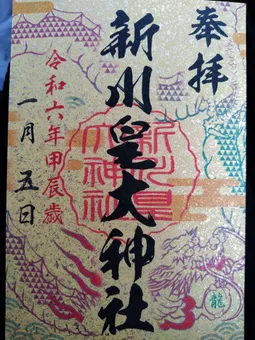 奉拝
新川皇大神社
令和六年甲辰歳
一月五日
新川皇大神社
龍